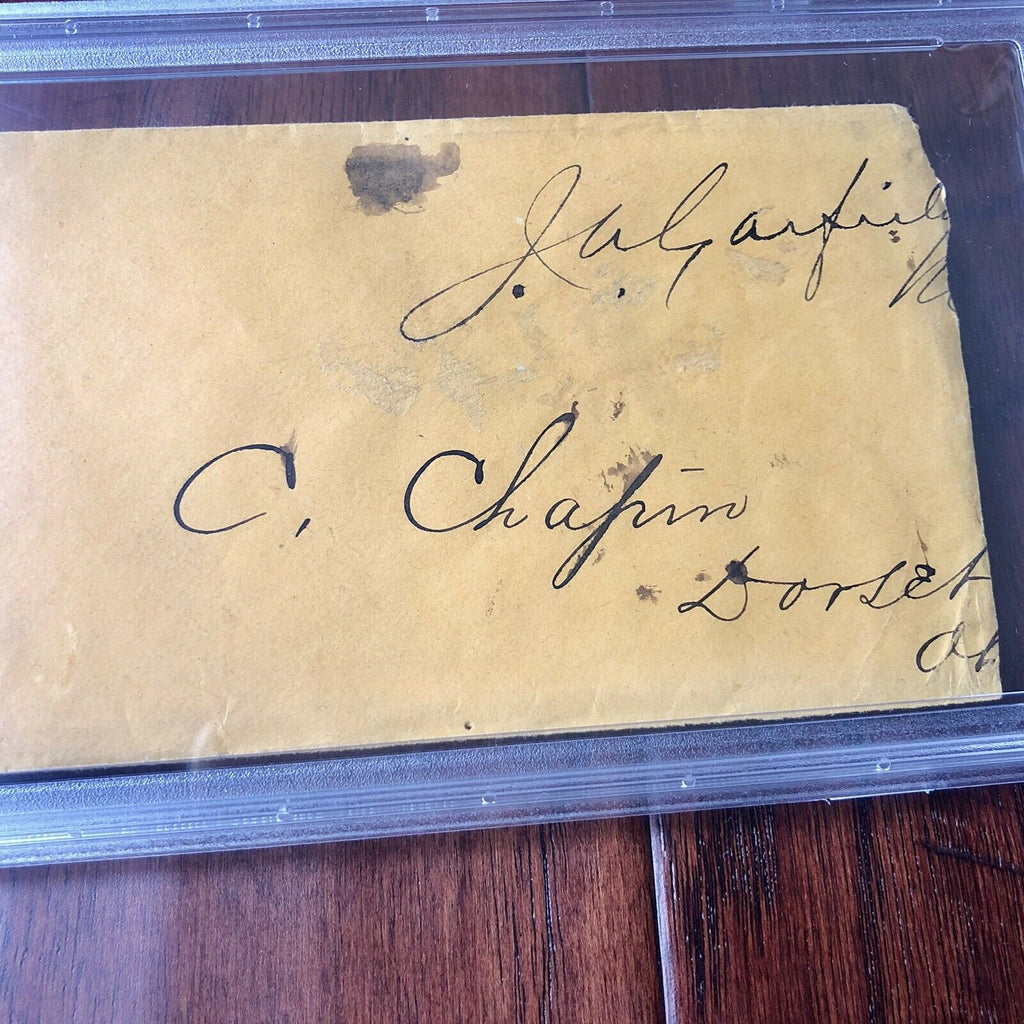 J. A. Garfield
C. Chapin
Dorset
Oh